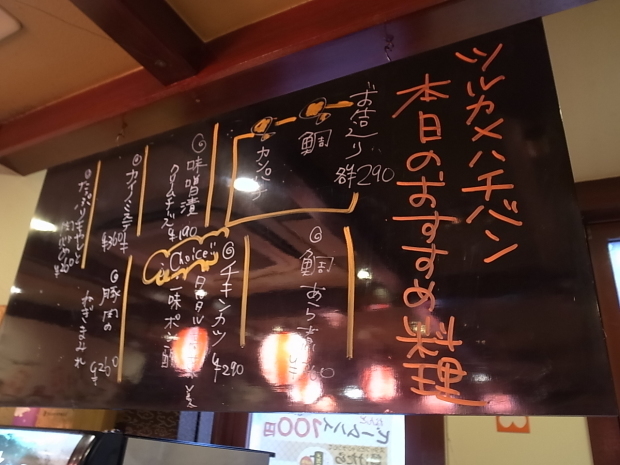 ツルカメハチバン
本日のおすすめ料理
お造り 各¥290
鯛
カンパチ
鯛あら煮
味噌漬
クリームチーズ ¥190
チキンカツ ¥290
Choice!!
タルタル
一味ポン酢
カイノミステーキ ¥360
豚肉の
ねぎまみれ
¥260
たっぷりキャベツと
ビームハイ100円